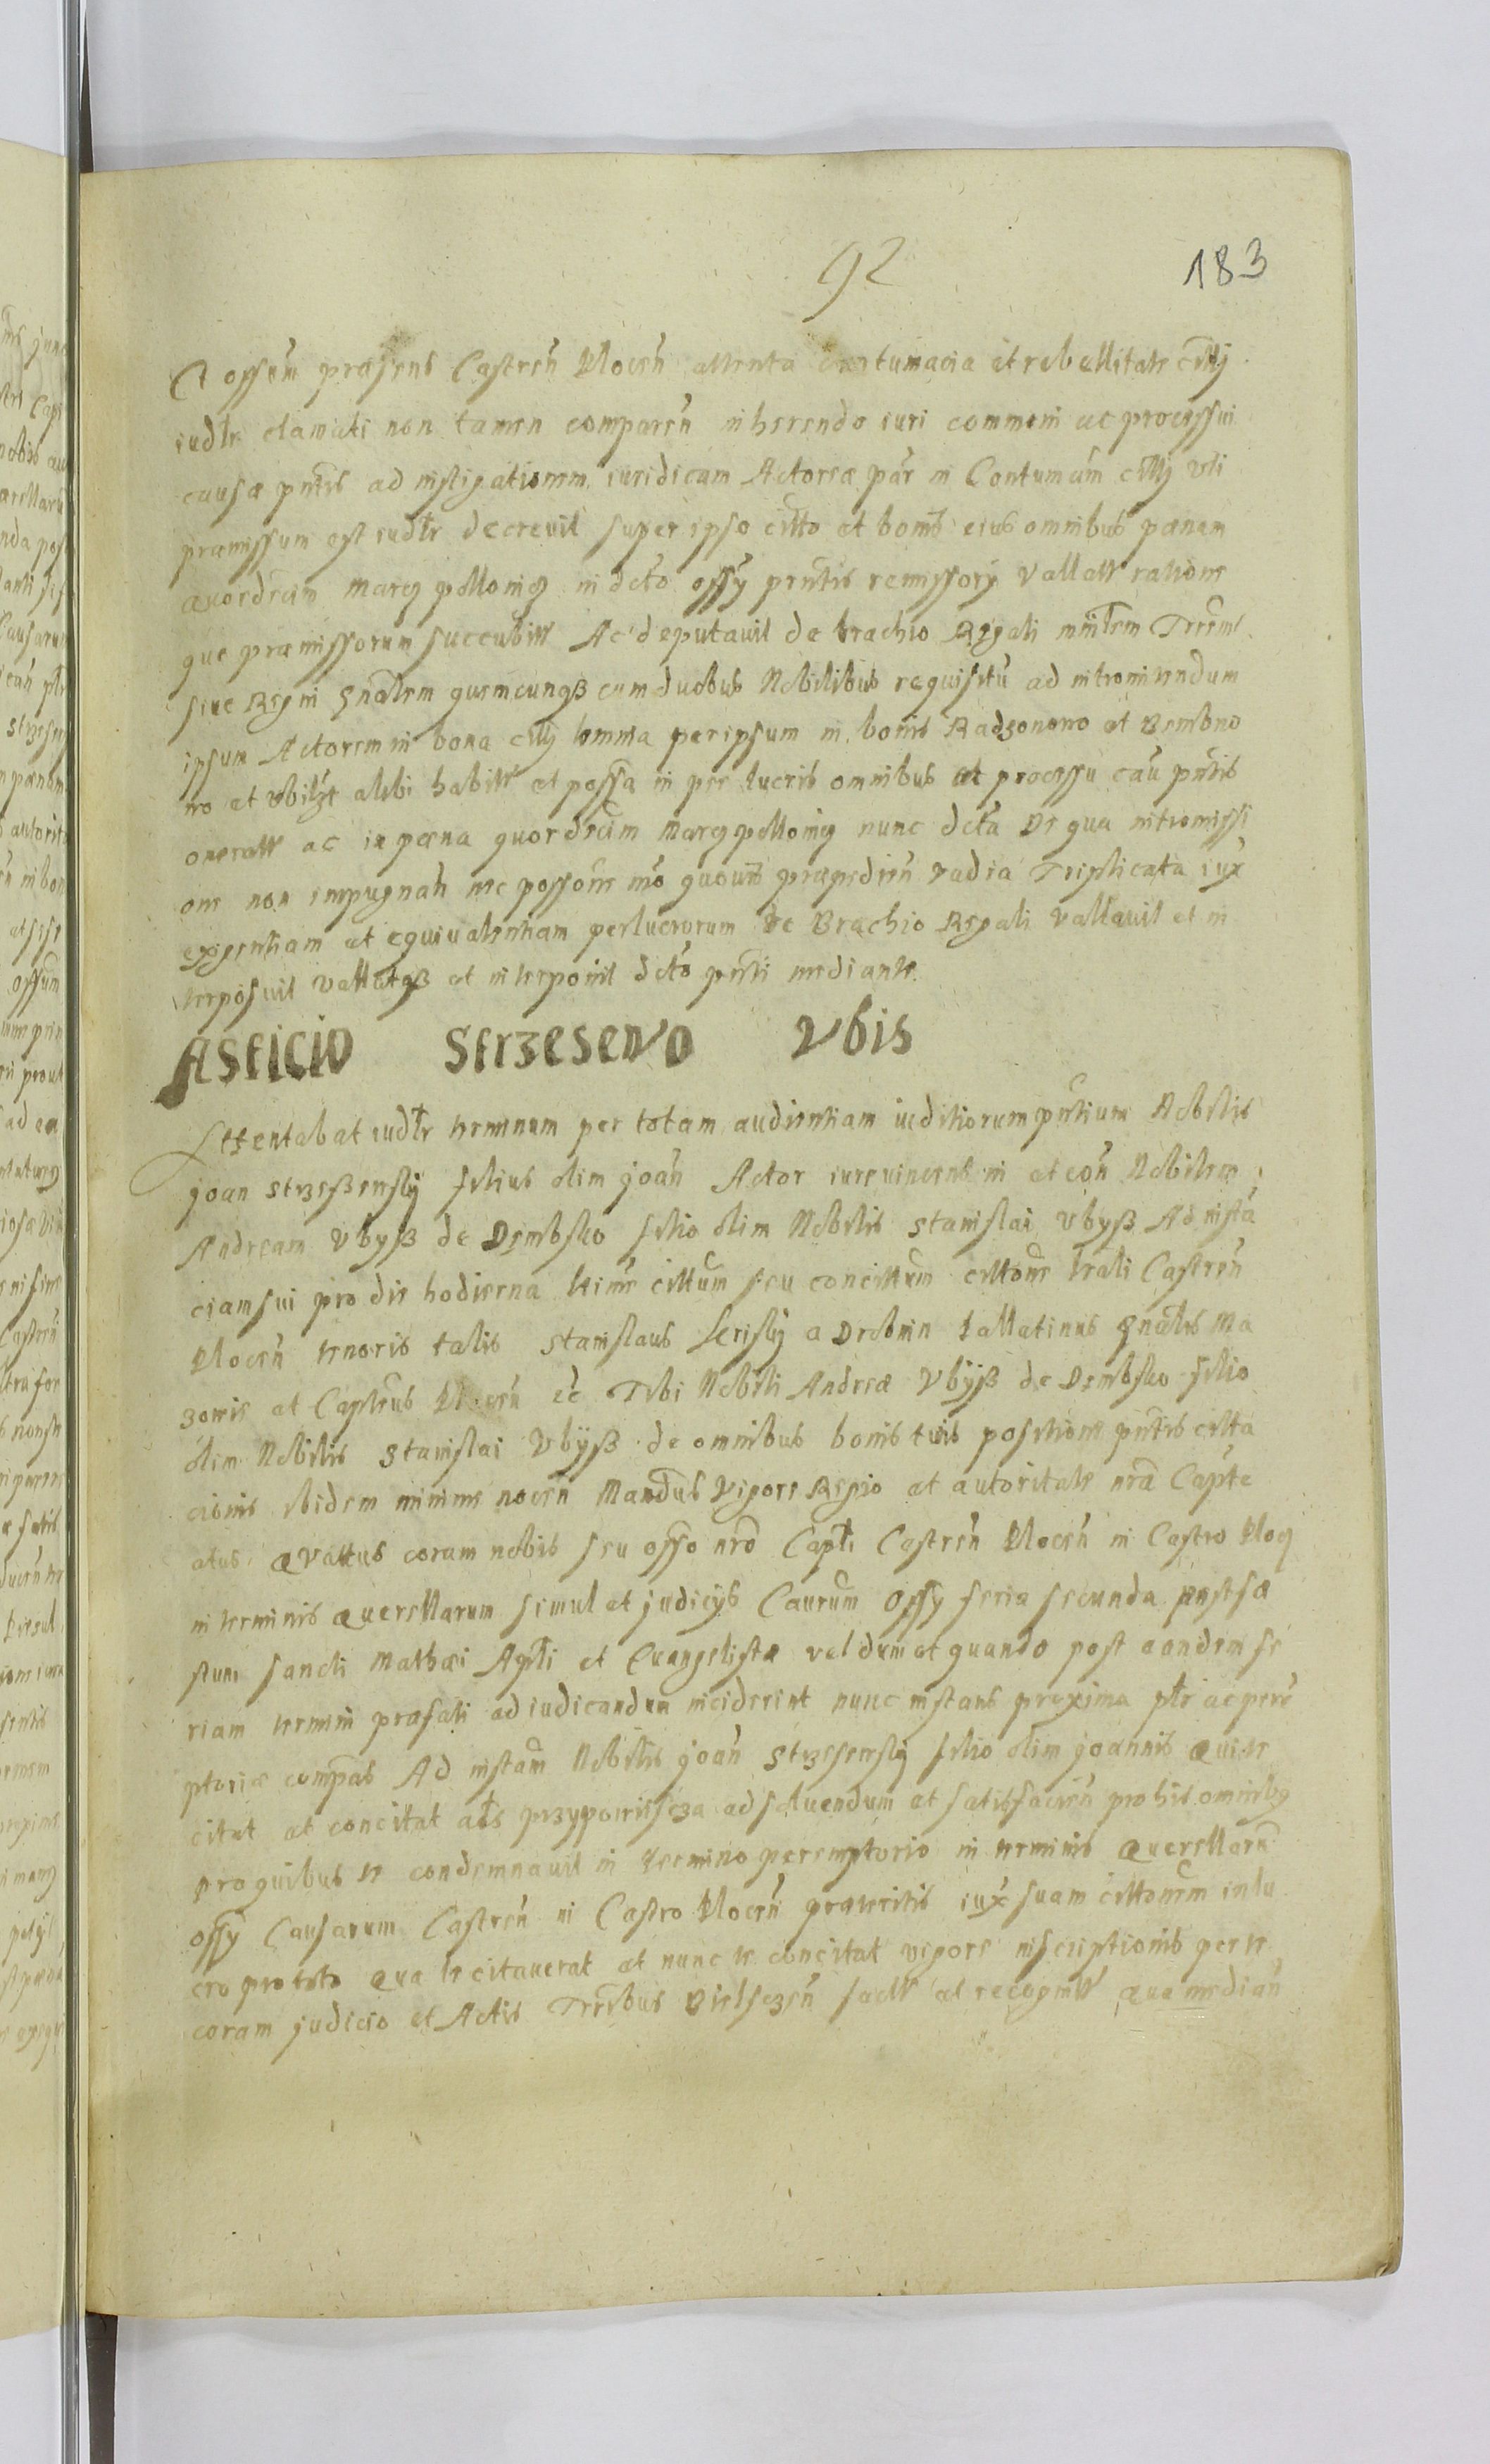 92
183
Et offm præsens Castren Plocen attenta contumacia et rebellitate citti
iudlr clamati non tamen comparen inherendo iuri communi ac processui
causæ pntis ad instigationem iuridicam Actoreæ par in Contumam citti uti
præmissum est iudlr decrevit super ipso citto et bonis eius omnibus pænam
quordecim marcq pollonicq in dcto offy prntis remissory vallatt ratione
que præmissorum succubitt Ac deputavit de brachio Regali mnlem Trrem
sive Regni gnalem quemcunqß cum duobus Nobilibus requisitu ad intromittendum
ipsum Actorem in bona citti omnia per ipsum in bonis Radzonowo et Bembno
wo et ubilzt alibi habitt et possa in per lucris omnibus et processu cau pntis
oneratt ac in pæna quordecim marcq pollonicq nunc dcta De qua intromissi
one non impugnan nec possone mo quovis præpedien vadia Triplicata iux
exigentiam et equivalentiam perlucrorum de Brachio Regali vallavit et in
terposuit vallatqß et interponit dcto pnti mediante
Asticio Strzesewo Ubis
Attentabat iudlr terminum per totam audientiam iuditiorum pntium Nobilis
joan Strzeßewsky filius olim joan Actor iure vincens in et con Nobilem
Andream Ubyß de Dembsko filio olim Nobilis Stanislai Ubyß Ad insta
ciam sui pro die hodierna ltime cittum seu concittum cittone lrali Castren
Plocen tenoris talis Stanislaus Serisky a Drobnin Pallatinus gnalis Ma
zowie et Captneus Plocen ec Tibi Nobili Andreæ Ubyß de Dembsko filio
olim Nobilis Stanislai Ubyß de omnibus bonis tuis positione pntis citta
cionis ibidem minime nocen Mandus Vigore Regio et autoritate nra Capte
atus quatus coram nobis seu offo nro Capli Castren Plocen in Castro Plocq
in terminis querellarum simul et judicÿs Caurum Offy feria secunda post fæ
stum sancti Mathæi Apli et Evangelistæ vel dum et quando post eandem fe
riam termini præfati ad iudicandum inciderint nunc instans proxima pltr ac pere
ptorie compas Ad instam Nobilis joan Strzesewsky filio olim joannis Qui te
citat et concitat als przypowiescza ad solvendum et satisfacien pro his omnibq
pro quibus te condemnavit in termino peremptorio in terminis querellaru
offy Causarum Castren in Castro Plocen præteritis iux suam cittonem in lu
cro pro toto Qua te citaverat et nunc te concitat vigore inscriptionis per te
coram judicio et Actis Trribus Bielsczen factt et recognitt Qua median